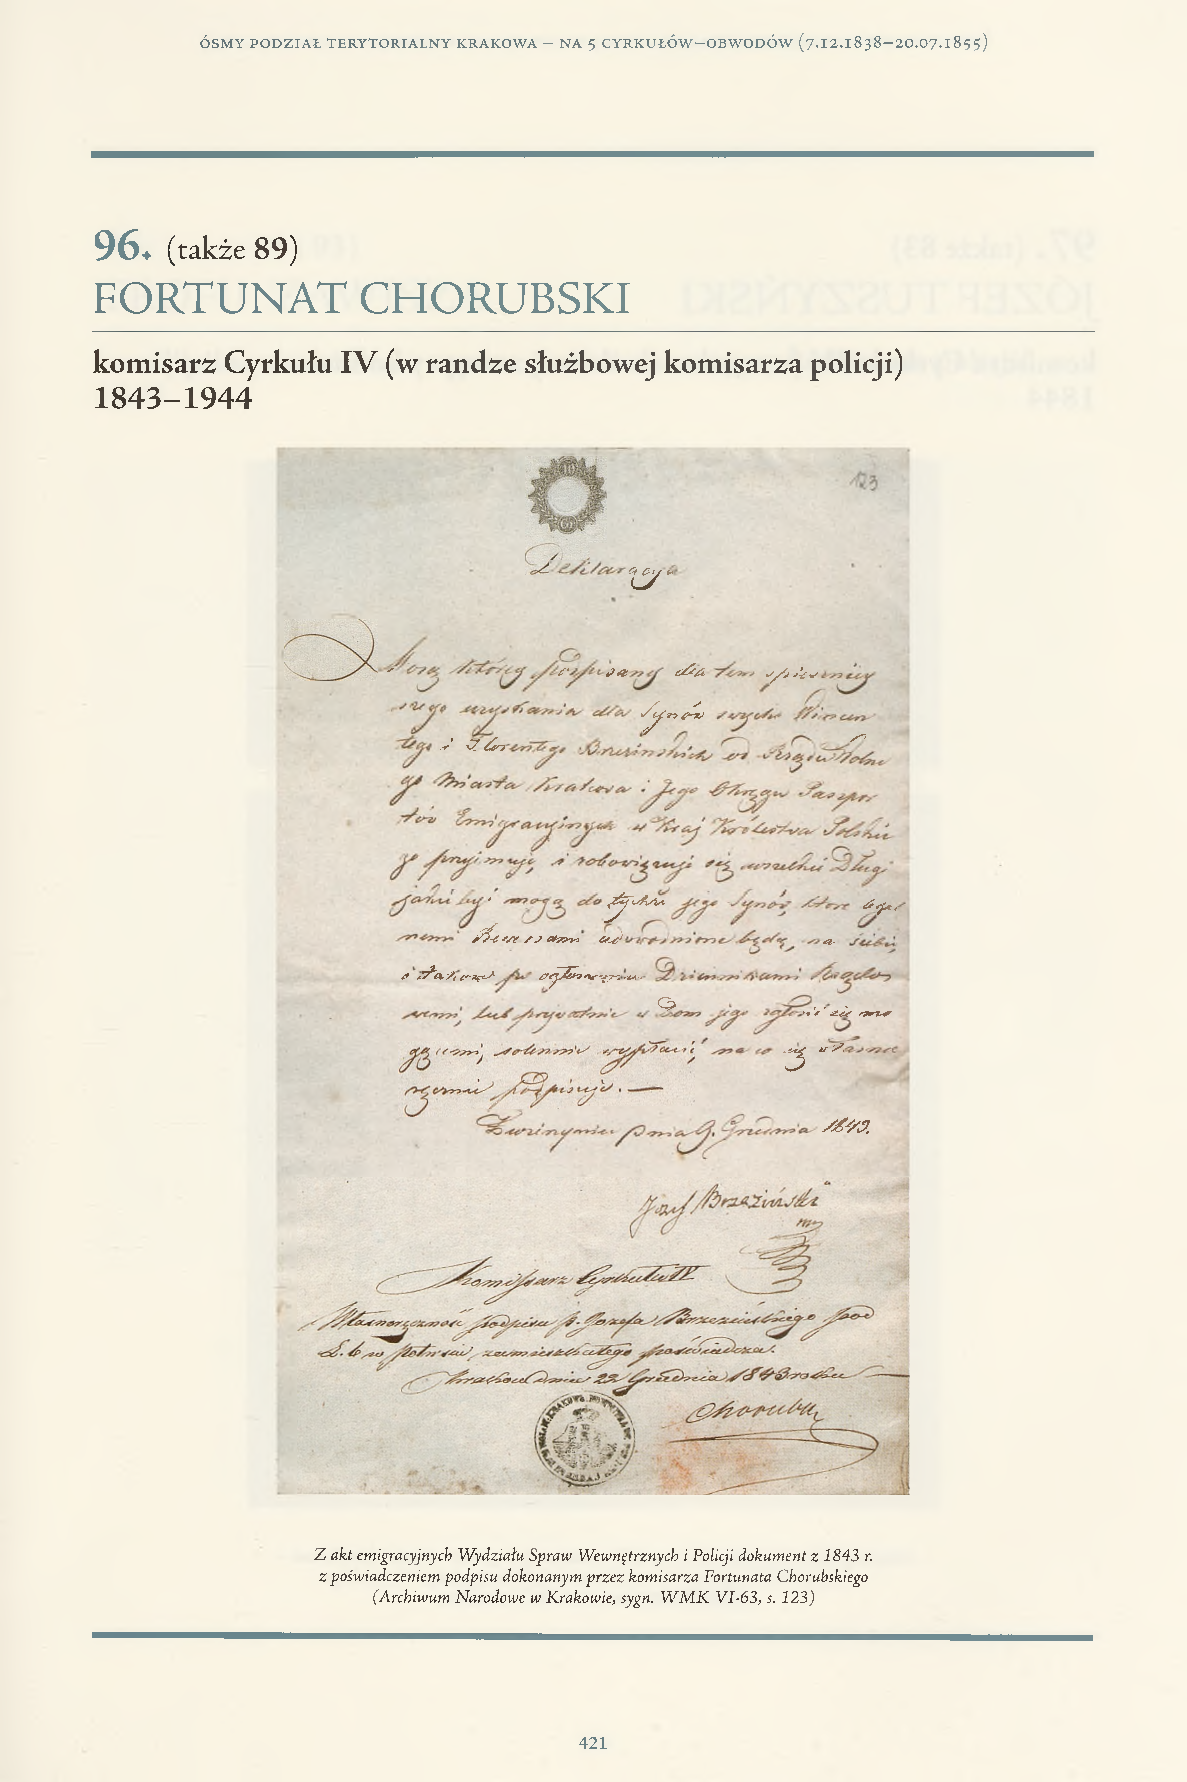 ÓSMY PODZIAŁ TERYTORIALNY KRAKOWA – NA 5 CYRKUŁÓW–OBWODÓW (7.12.1838–20.07.1855)
96. (także 89)
FORTUNAT CHORUBSKI
komisarz Cyrkułu IV (w randze służbowej komisarza policji)
1843–1944
123
Deklaracya
Mocą którey podpisany dla tem spieszniey
szego uzyskania dla Synów swych Wincen
tego i Florentego Brzezinskich od Rządu Wolne
go Miasta Krakowa i Jego Okręgu Paszpor
tów Emigracyinych w Kray Królestwa Polskie
go przyimuję, i zobowięzuje się wszelkie Długi
jakie być mogą do tychże jego Synów, które legal
nemi Rewersami udowodnione będą, na siebie,
i takowe po ogłoszeniu Dziennikami Rządow
wemi, lub prywatnie w Dom jego zgłosić się mo
gącemi, solennie wypłacić, na co się własno
ręcznie podpisuje. —
Zwierzyniec Dnia 9. Grudnia 1843.
Jozef Brzeziński
Kommissarz Cyrkułu IV
Własnoręczność podpisu p. Jozefa Brzezińskiego pod
L. 6 w zamieszkałego poświadcza.
Kraków dnia 22 Grudnia 1843 roku
Chorubski
Z akt emigracyjnych Wydziału Spraw Wewnętrznych i Policji dokument z 1843 r.
z poświadczeniem podpisu dokonanym przez komisarza Fortunata Chorubskiego
(Archiwum Narodowe w Krakowie, sygn. WMK VI-63, s. 123)
421